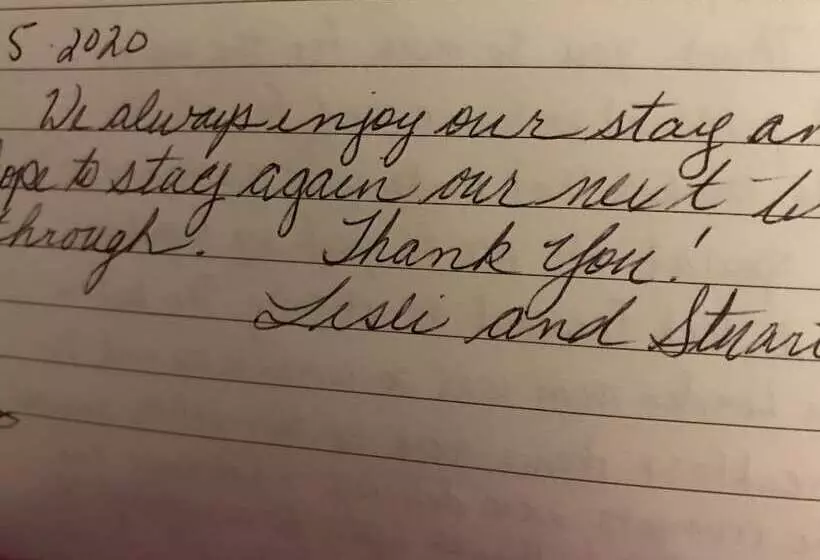 5 2020
We always enjoy our stay an
ope to stay again our next t
through. Thank You!
Lesli and Stuart